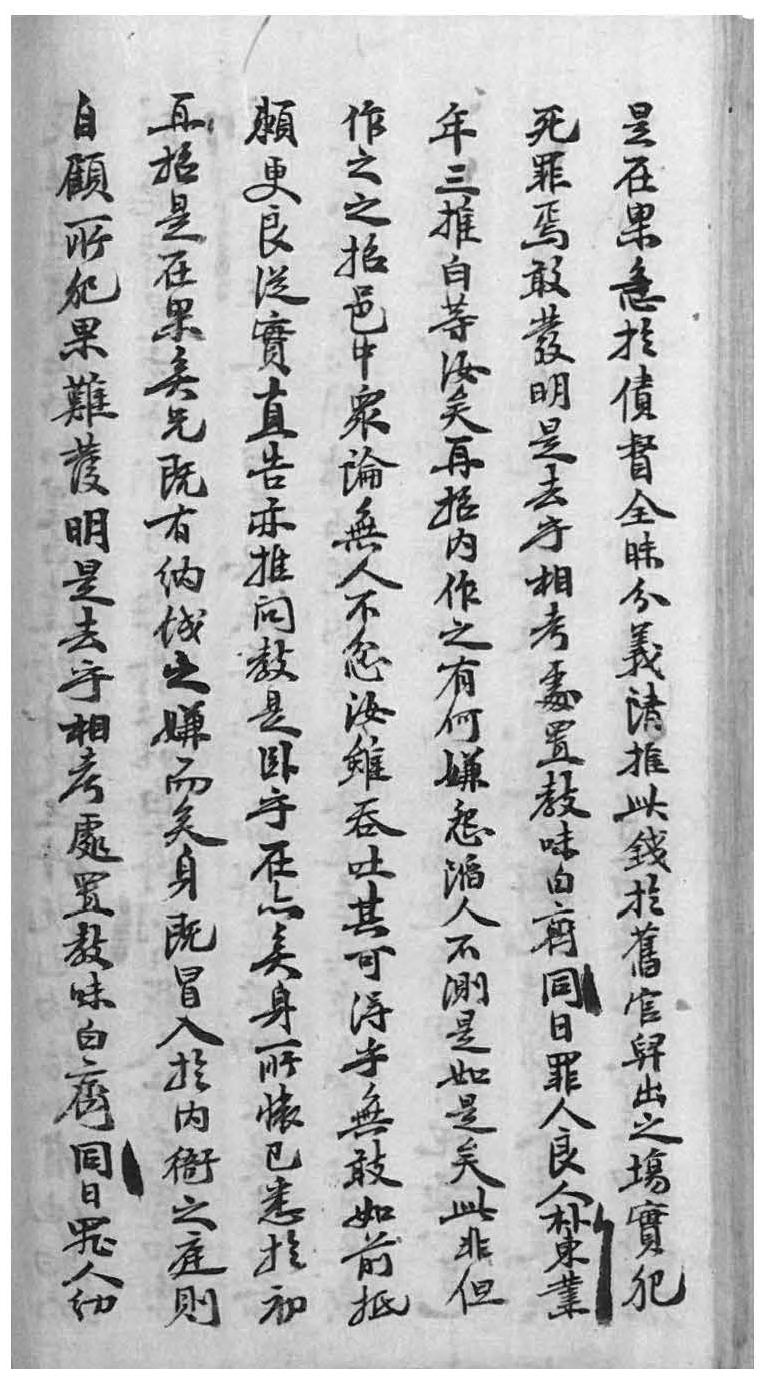 是在果急於債督全昧分義請推此錢於舊官舁出之場實犯
死罪焉敢發明是去乎相考處置教味白齊同日罪人良人朴東業
年三推白等汝矣再招內作之有何嫌怨滔人不測是如是矣此非但
作之之招邑中衆論無人不忿汝雖吞吐其可得乎無敢如前抵
賴更良從實直告亦推問教是臥乎在亦矣身所懷已悉於初
再招是在果矣兄旣有納俄之嫌而矣身旣冒入於內衙之庭則
自顧所犯果難發明是去乎相考處置教味白齊同日罪人幼